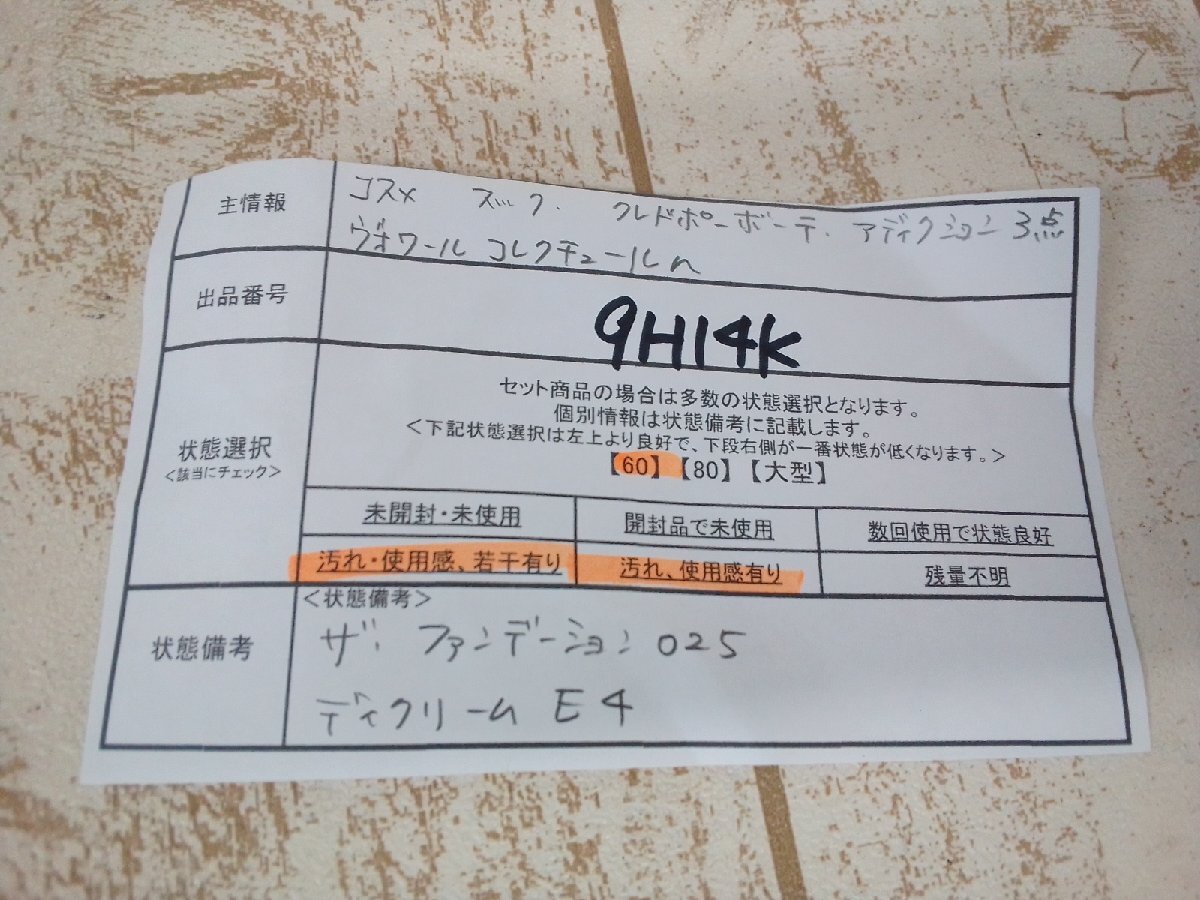 主情報
コスメ スック. クレドポーボーテ. アディクション 3点
ヴォワール コレクチュールn
出品番号
9H14K
状態選択
<該当にチェック>
セット商品の場合は多数の状態選択となります。
個別情報は状態備考に記載します。
<下記状態選択は左上より良好で、下段右側が一番状態が低くなります。>
【60】【80】【大型】
未開封・未使用 開封品で未使用 数回使用で状態良好
汚れ・使用感、若干有り 汚れ、使用感有り 残量不明
状態備考
<状態備考>
ザ. ファンデーション 025
ディクリーム E4